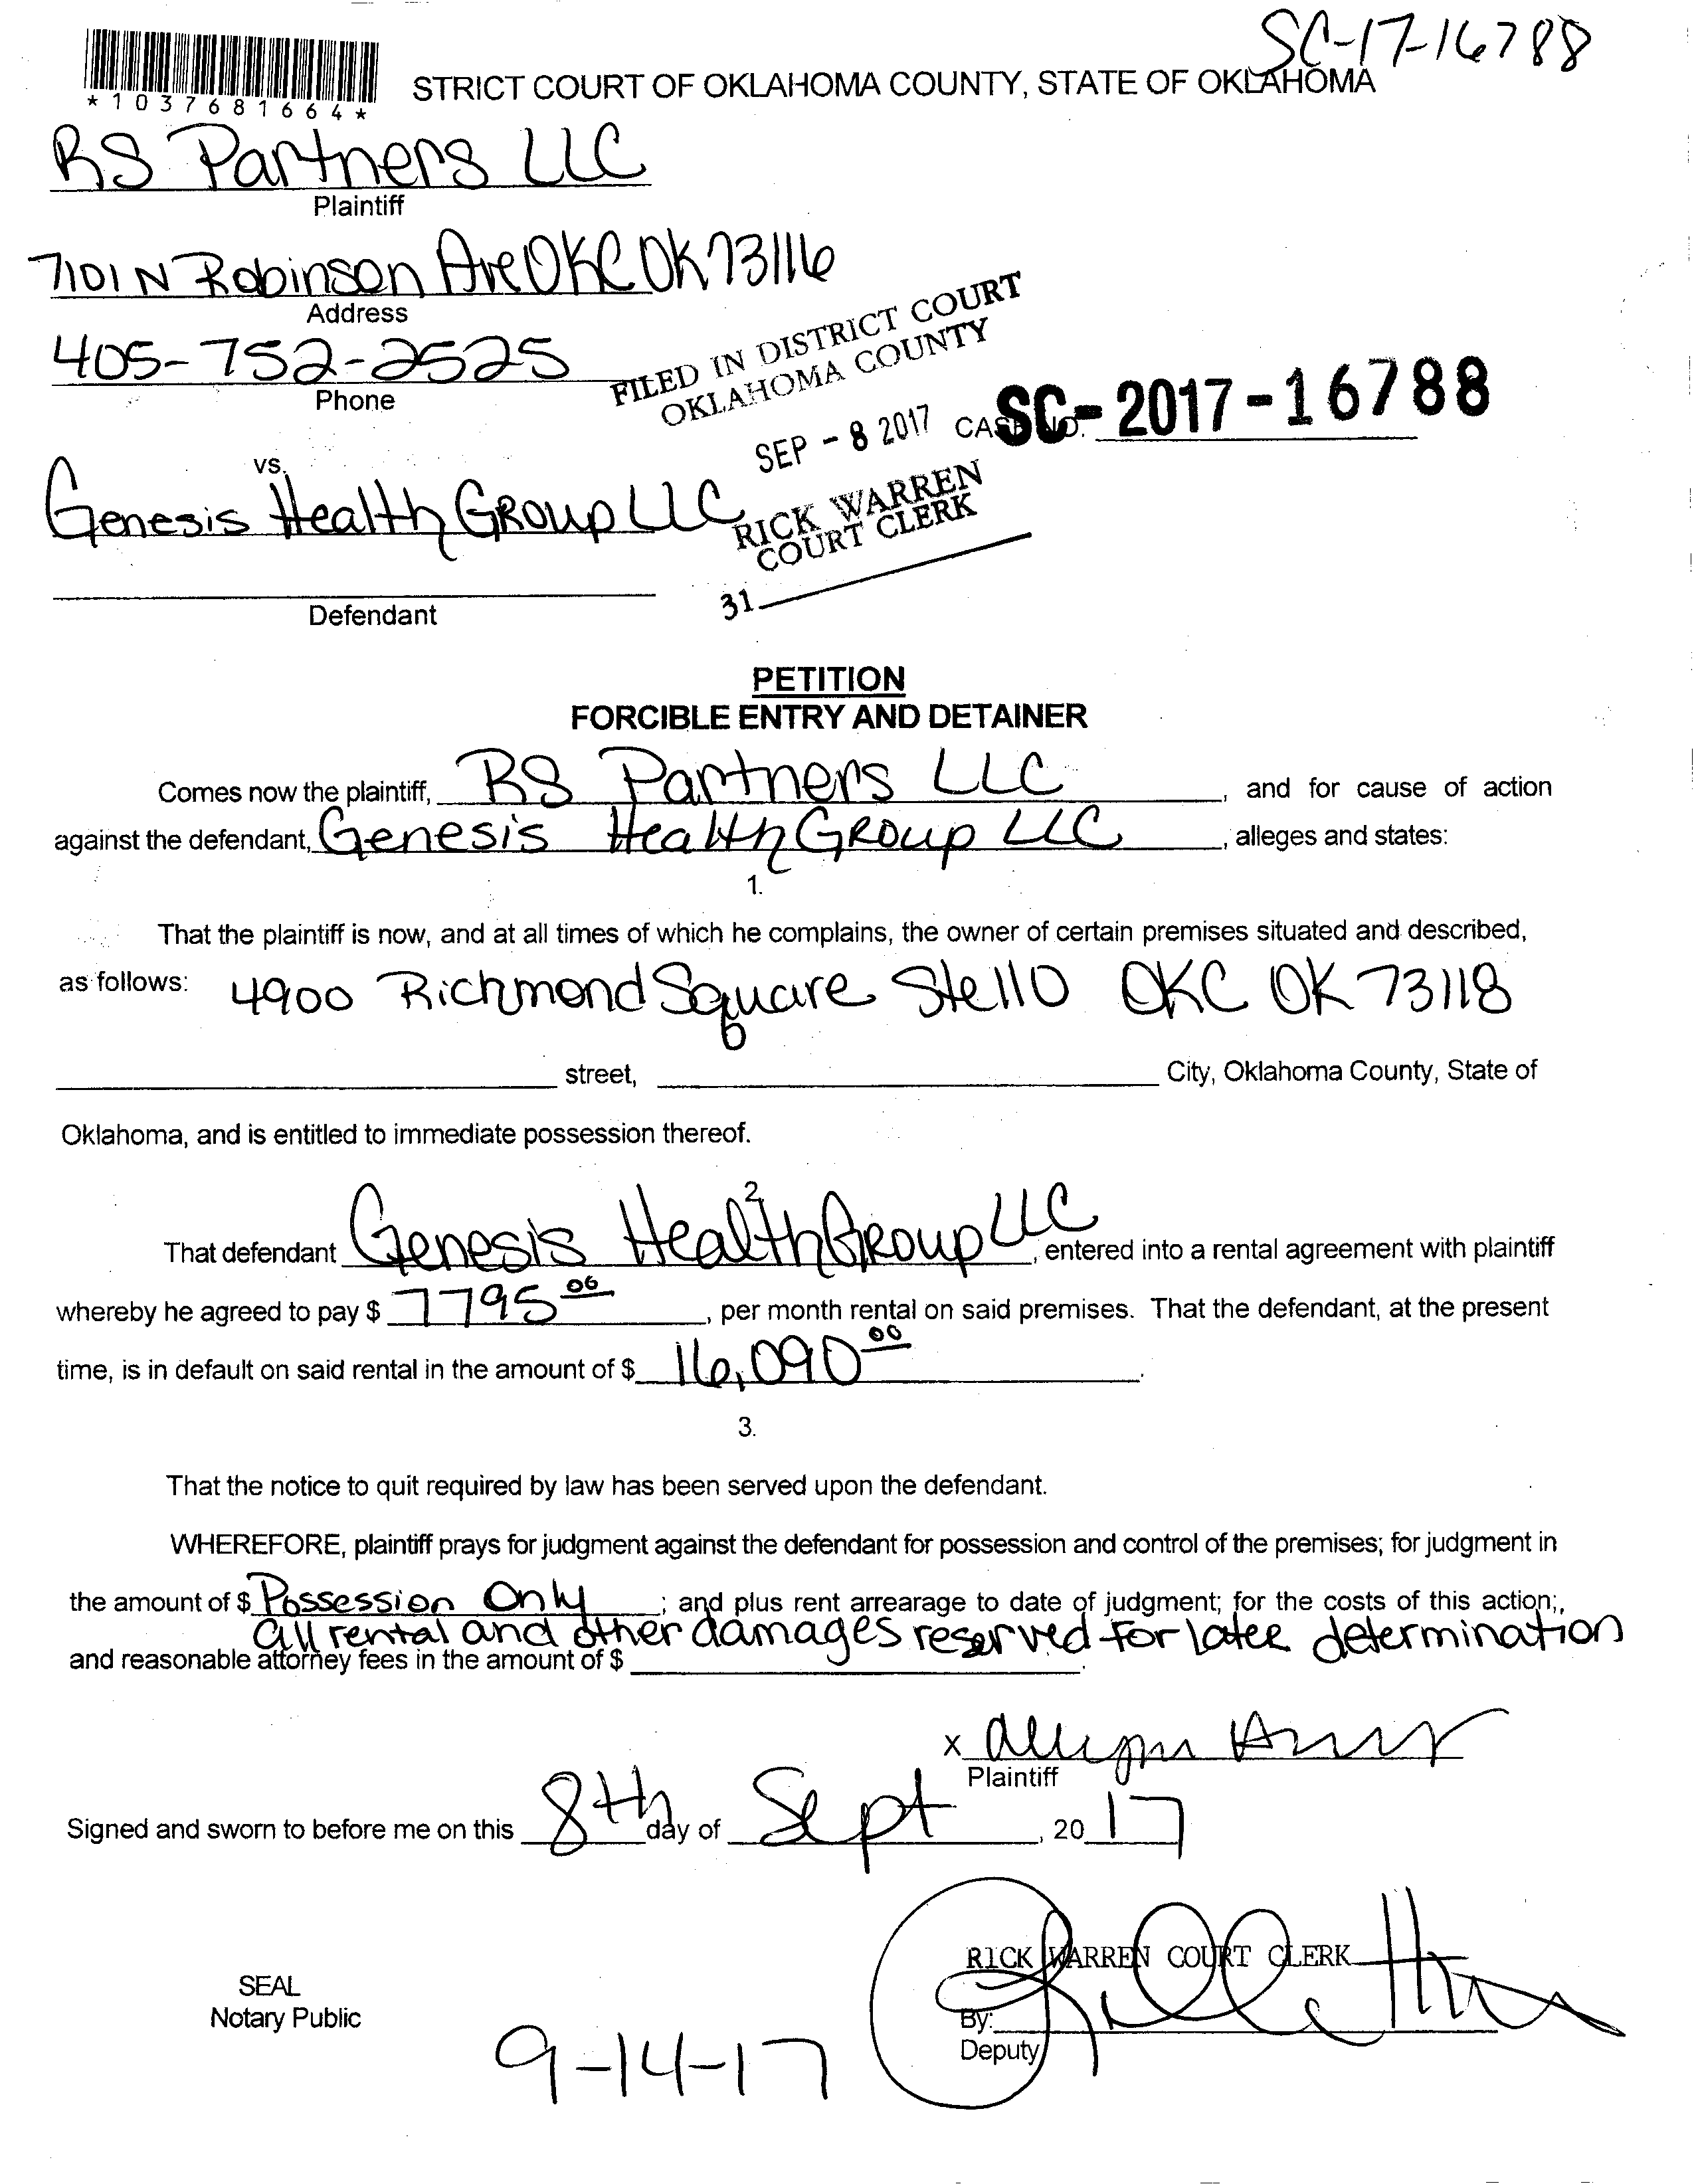 SC-17-16788
*1037681664*
STRICT COURT OF OKLAHOMA COUNTY, STATE OF OKLAHOMA
RS Partners LLC
Plaintiff
7101 N Robinson Ave OKC OK 73116
Address
405-752-2525
Phone
FILED IN DISTRICT COURT
OKLAHOMA COUNTY
SEP - 8 2017
CASE NO. SC-2017-16788
RICK WARREN
COURT CLERK
31
vs.
Genesis Health Group LLC
Defendant
PETITION
FORCIBLE ENTRY AND DETAINER
Comes now the plaintiff, RS Partners LLC, and for cause of action
against the defendant, Genesis Health Group LLC, alleges and states:
1.
That the plaintiff is now, and at all times of which he complains, the owner of certain premises situated and described,
as follows: 4900 Richmond Square Ste 110 OKC OK 73118
street, City, Oklahoma County, State of
Oklahoma, and is entitled to immediate possession thereof.
2.
That defendant Genesis Health Group LLC, entered into a rental agreement with plaintiff
whereby he agreed to pay $ 7795 00, per month rental on said premises. That the defendant, at the present
time, is in default on said rental in the amount of $ 16,090 00.
3.
That the notice to quit required by law has been served upon the defendant.
WHEREFORE, plaintiff prays for judgment against the defendant for possession and control of the premises; for judgment in
the amount of $ Possession Only; and plus rent arrearage to date of judgment; for the costs of this action;,
all rental and other damages reserved for later determination
and reasonable attorney fees in the amount of $.
x
Plaintiff
Signed and sworn to before me on this 8th day of Sept, 2017
RICK WARREN COURT CLERK
SEAL
Notary Public
By:
Deputy
9-14-17